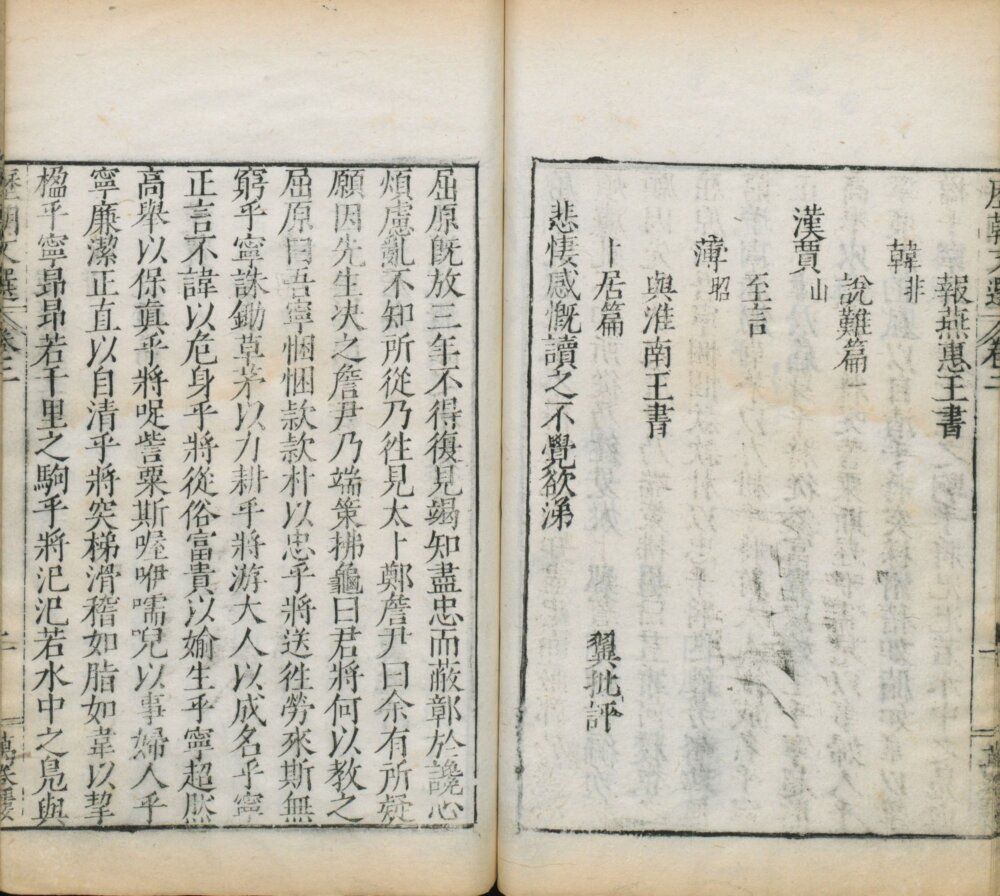 報燕惠王書
韓非
說難篇
漢賈山
至言
薄昭
與淮南王書
卜居篇 翼批評
悲悽感慨讀之不覺欲涕
屈原旣放三年不得復見竭知盡忠而蔽鄣於讒心
煩慮亂不知所從乃徃見太卜鄭詹尹曰余有所疑
願因先生决之詹尹乃端策拂龜曰君將何以教之
屈原曰吾寧悃悃款款朴以忠乎將送徃勞來斯無
窮乎寧誅鋤草茅以力耕乎將游大人以成名乎寧
正言不諱以危身乎將從俗富貴以婾生乎寧超然
高舉以保真乎將哫訾粟斯喔咿嚅唲以事婦人乎
寧廉潔正直以自清乎將突梯滑稽如脂如韋以挈
楹乎寧昂昂若千里之駒乎將氾氾若水中之鳧與
二
萬卷樓